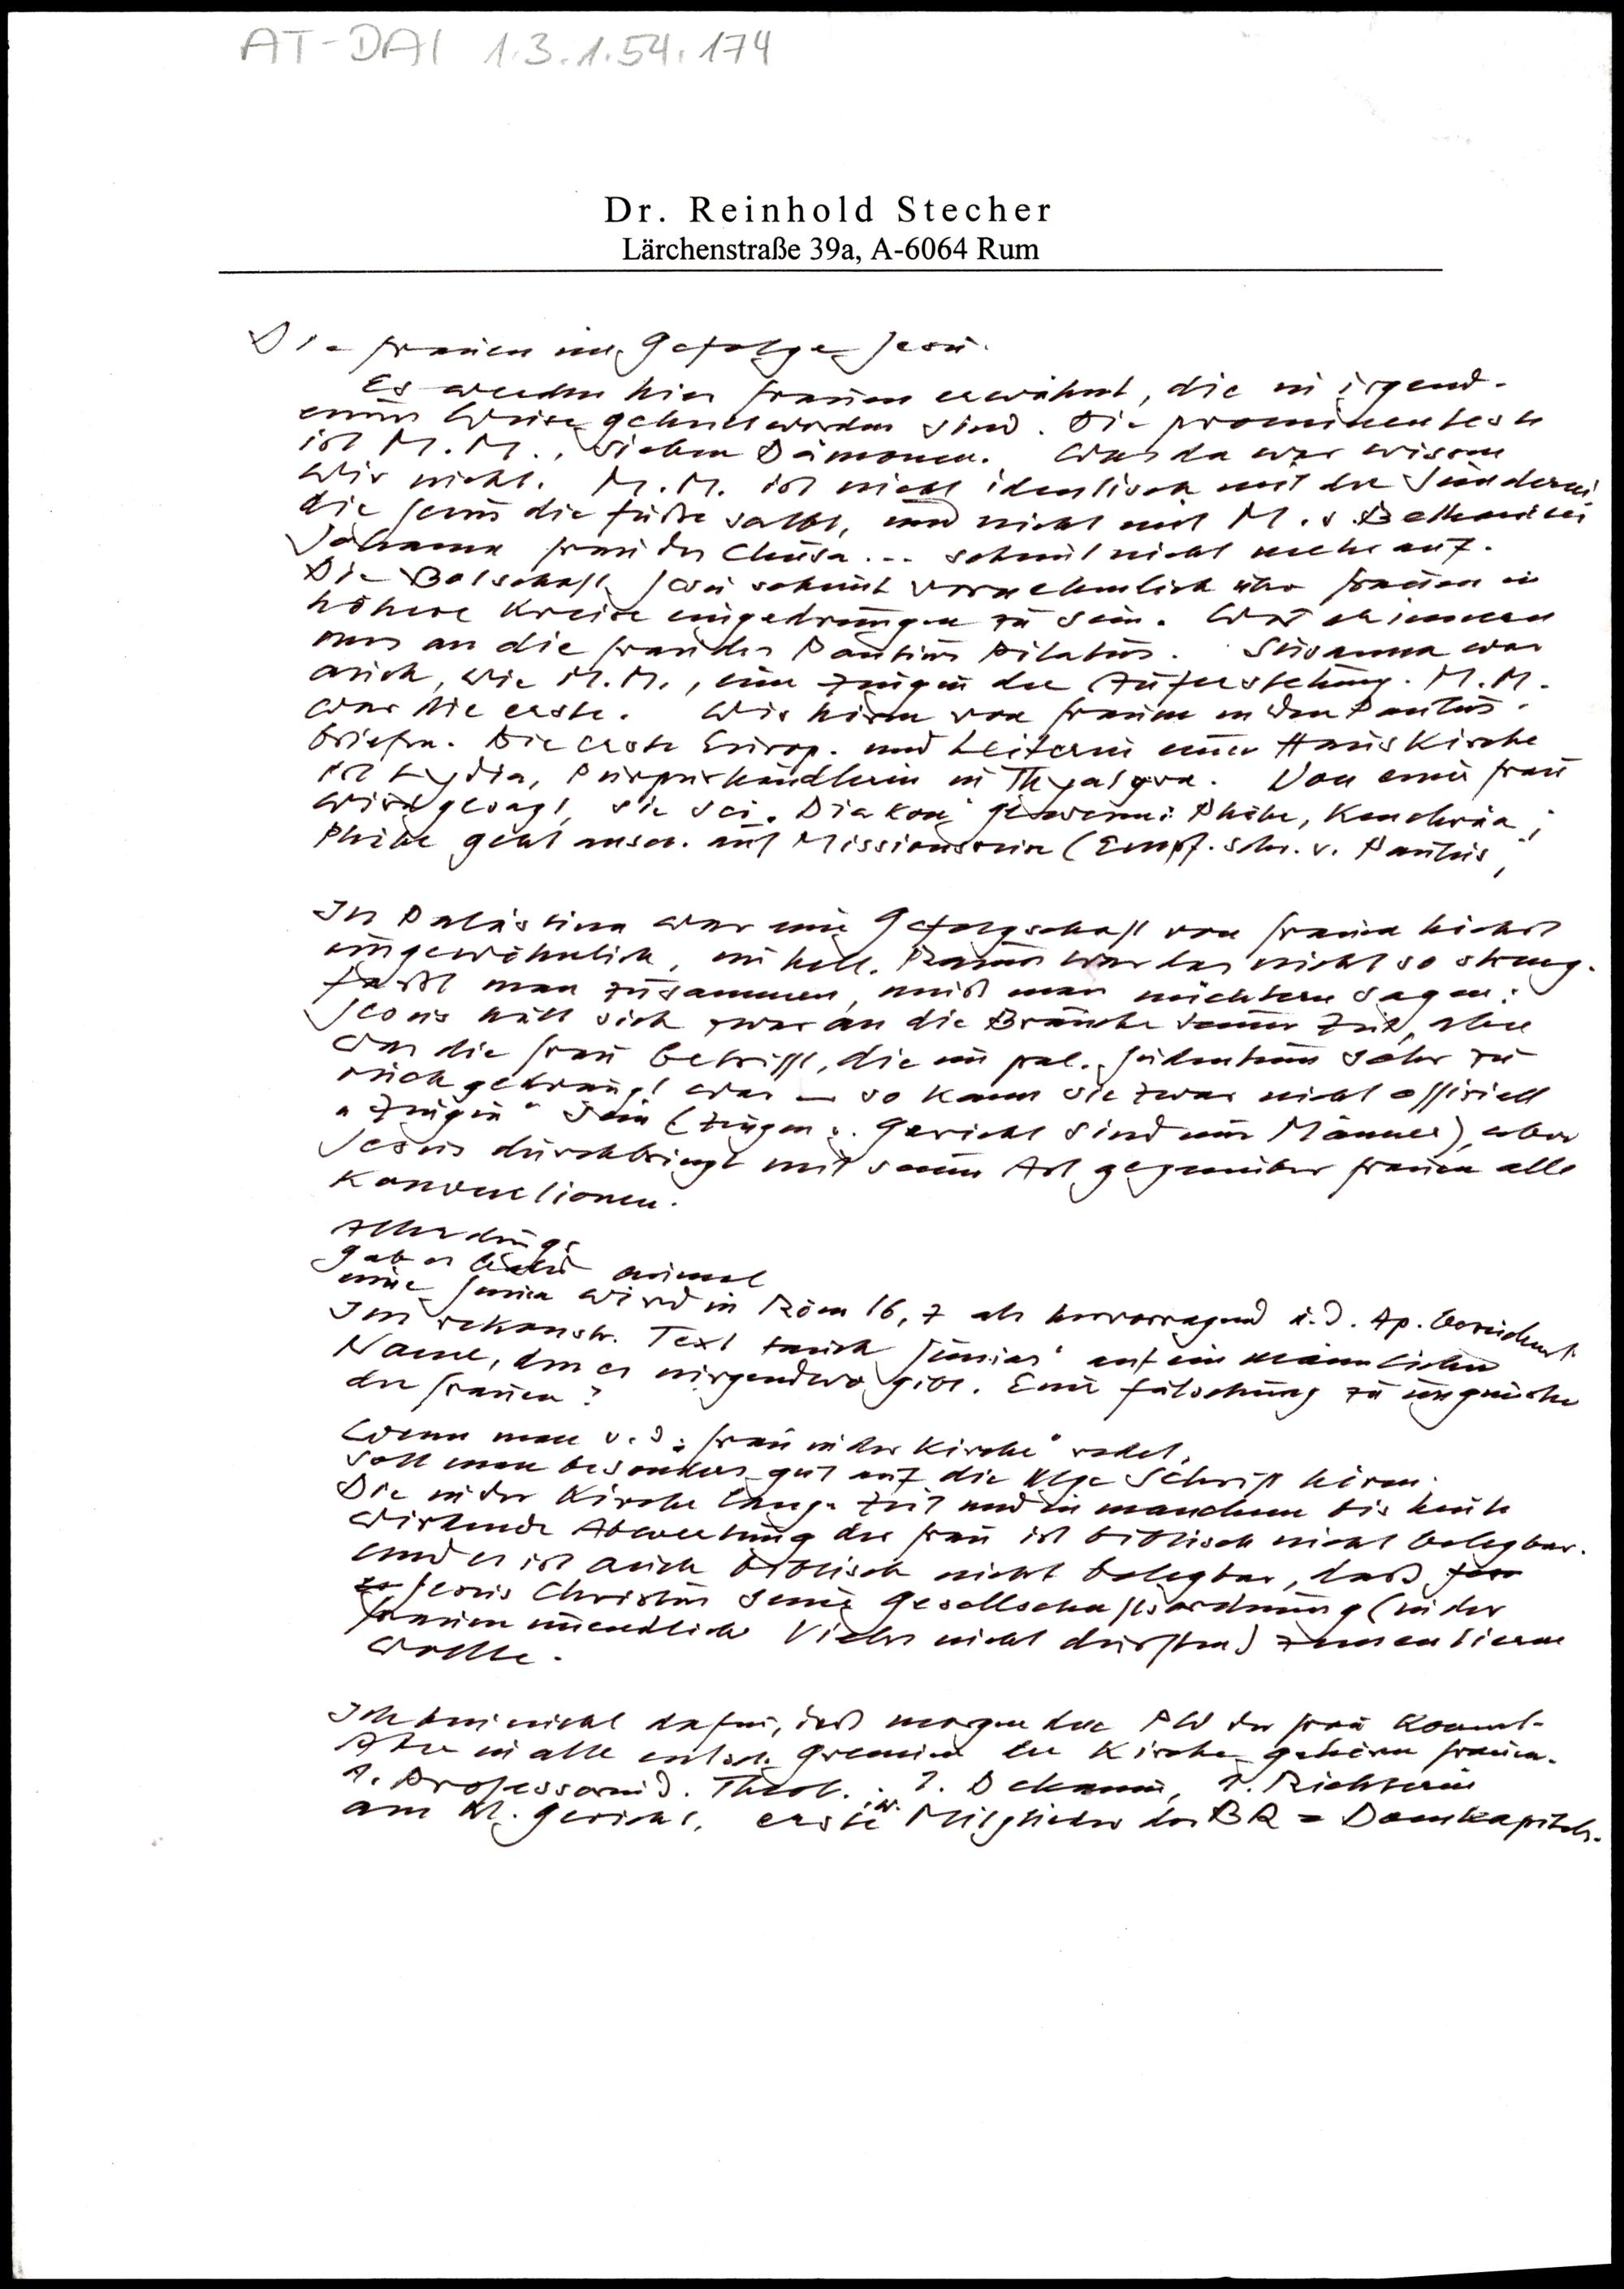 AT-DAI 1.3.1.54.174
Dr. Reinhold Stecher
Lärchenstraße 39a, A-6064 Rum
Die Frauen im Gefolge Jesu.
Es werden hier Frauen erwähnt, die in irgend-
einer Weise geheilt worden sind. Die prominenteste
ist M. M., sieben Dämonen. Was da war wissen
wir nicht. M. M. ist nicht identisch mit der Sünderin
die Jesus die Füße salbt, und nicht mit M. v. Bethanien
Johanna Frau des Chusa... scheint nicht mehr auf.
Die Botschaft Jesu scheint vornehmlich über Frauen in
höhere Kreise eingedrungen zu sein. Wir erinnern
uns an die Frau des Pontius Pilatus. Susanna war
auch, wie M. M., eine Zeugin der Auferstehung. M. M.
war die erste. Wir hören von Frauen in den Paulus-
briefen. Die erste Europ. und Leiterin einer Hauskirche
ist Lydia, Purpurhändlerin in Thyatyra. Von einer Frau
wird gesagt, sie sei „Diakon" gewesen: Phöbe, Kenchräa;
Phöbe geht ansch. auf Missionsreise (Empf. schr. v. Paulus,
In Palästina war eine Gefolgschaft von Frauen höchst
ungewöhnlich, im hell. Raum war das nicht so streng.
Faßt man zusammen, muß man nüchtern sagen:
Jesus hält sich zwar an die Bräuche seiner Zeit, aber
was die Frau betrifft, die im pal. Judentum sehr zu
rückgedrängt war – so kann sie zwar nicht offiziell
„Zeugin" sein (Zeugen v. Gericht sind nur Männer), aber
Jesus durchbringt mit seiner Art gegenüber Frauen alle
Konventionen.
Allerdings
gab es einmal
eine Junia wird in Röm 16, 7 als hervorragend u. d. Ap. bezeichnet.
Im rekonstr. Text tauch „Junias" auf ein männlicher
Name, den es nirgendwo gibt. Eine Fälschung zu ungunsten
der Frauen?
Wenn man v. d. „Frau in der Kirche" redet,
soll man besonders gut auf die Hlge Schrift hören.
Die in der Kirche lange Zeit und in manchem bis heute
wirkende Abwertung der Frau ist biblisch nicht belegbar.
und es ist auch biblisch nicht belegbar, daß
Jesus Christus seine Gesellschaftsordnung (in der
Frauen unendlich Vieles nicht durften) zementieren
wollte.
Ich bin nicht dafür, daß morgen die PW der Frau kommt.
Aber in alle entsch. Gremien der Kirche gehören Frauen.
1. Professorin d. Theol. 1. Dekanin, 1. Richterin
am kl. Gericht, erste w. Mitglieder des BR = Domkapitels.